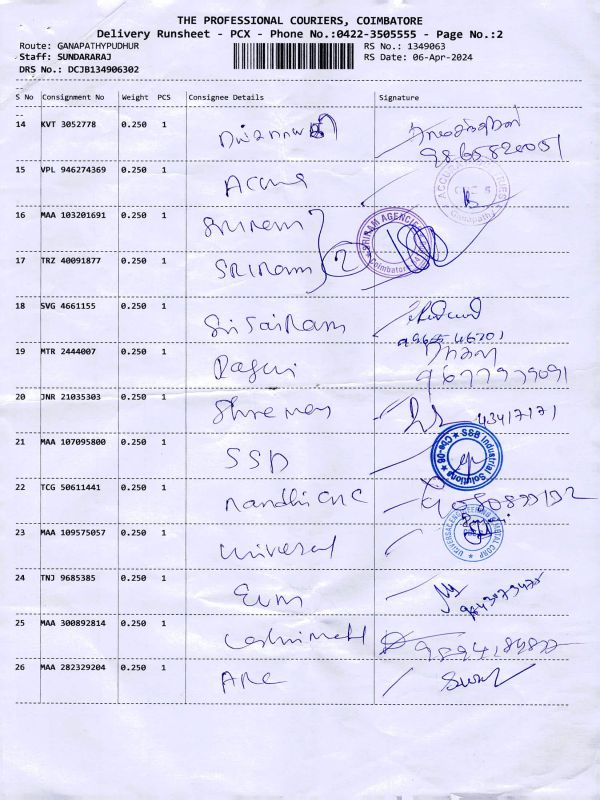 THE PROFESSIONAL COURIERS, COIMBATORE
Delivery Runsheet - PCX - Phone No.:0422-3505555 - Page No.:2
Route: GANAPATHYPUDHUR
RS No.: 1349063
Staff: SUNDARARAJ
RS Date: 06-Apr-2024
DRS No.: DCJB134906302
S No Consignment No Weight PCS Consignee Details Signature
14 KVT 3052778 0.250 1
15 VPL 946274369 0.250 1
16 MAA 103201691 0.250 1 Sriram
SRIRAM AGENCIES Coimbatore
17 TRZ 40091877 0.250 1 SRIRam 2
18 SVG 4661155 0.250 1 Sri SaiRam
19 MTR 2444007 0.250 1
9677979091
20 JNR 21035303 0.250 1
43417171
21 MAA 107095800 0.250 1 SSD
SSB Industrial Solutions
22 TCG 50611441 0.250 1 nandhi CNC
23 MAA 109575057 0.250 1 Universal
24 TNJ 9685385 0.250 1
25 MAA 300892814 0.250 1
26 MAA 282329204 0.250 1 ARC